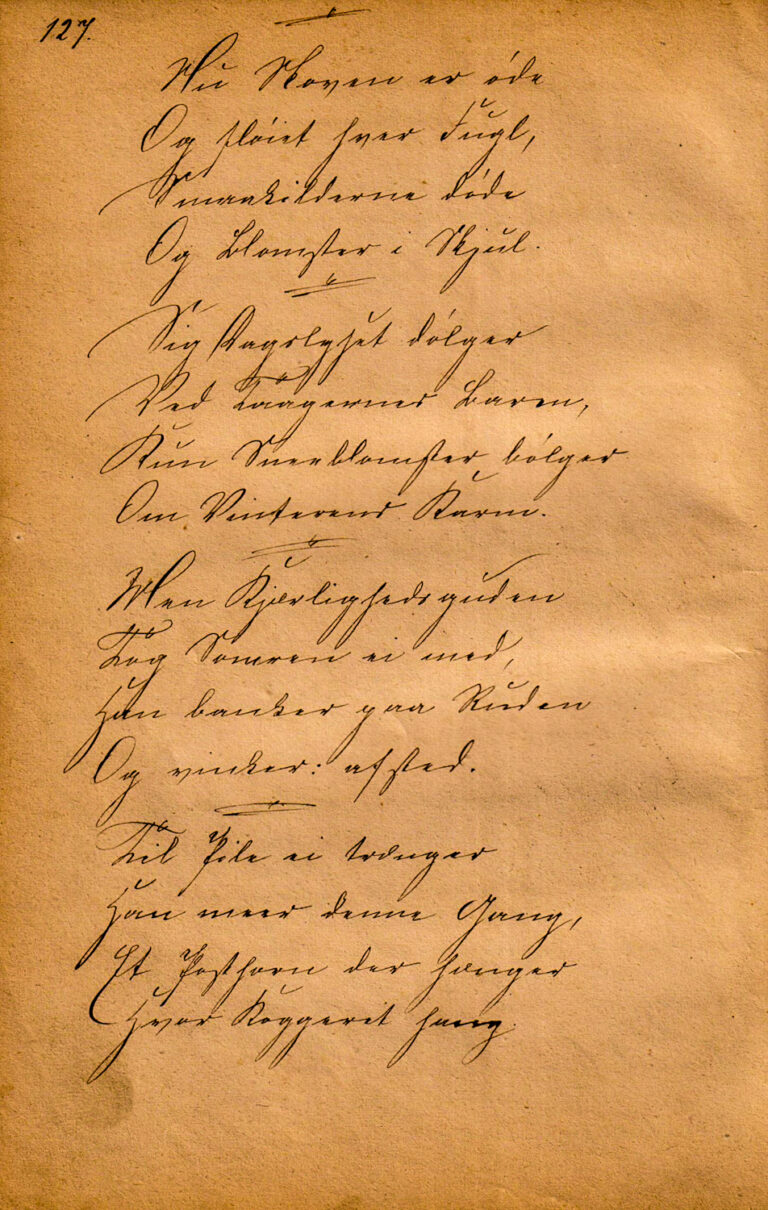 127.
Nu Skoven er øde
Og fløiet hver Fugl,
Smaakilderne døde
Og Blomster i Skjul.
Sig Dagslyset dølger
Ved Taagernes Barm,
Kun Sneeblomster bølger
Om Vinterens Karm.
Men Kjærlighedsguden
Tog Somren ei med,
Han banker paa Ruden
Og vinker: afsted.
Til Pile ei trænger
Han meer denne Gang,
Et Posthorn der hænger
Hvor Koggeret hang.